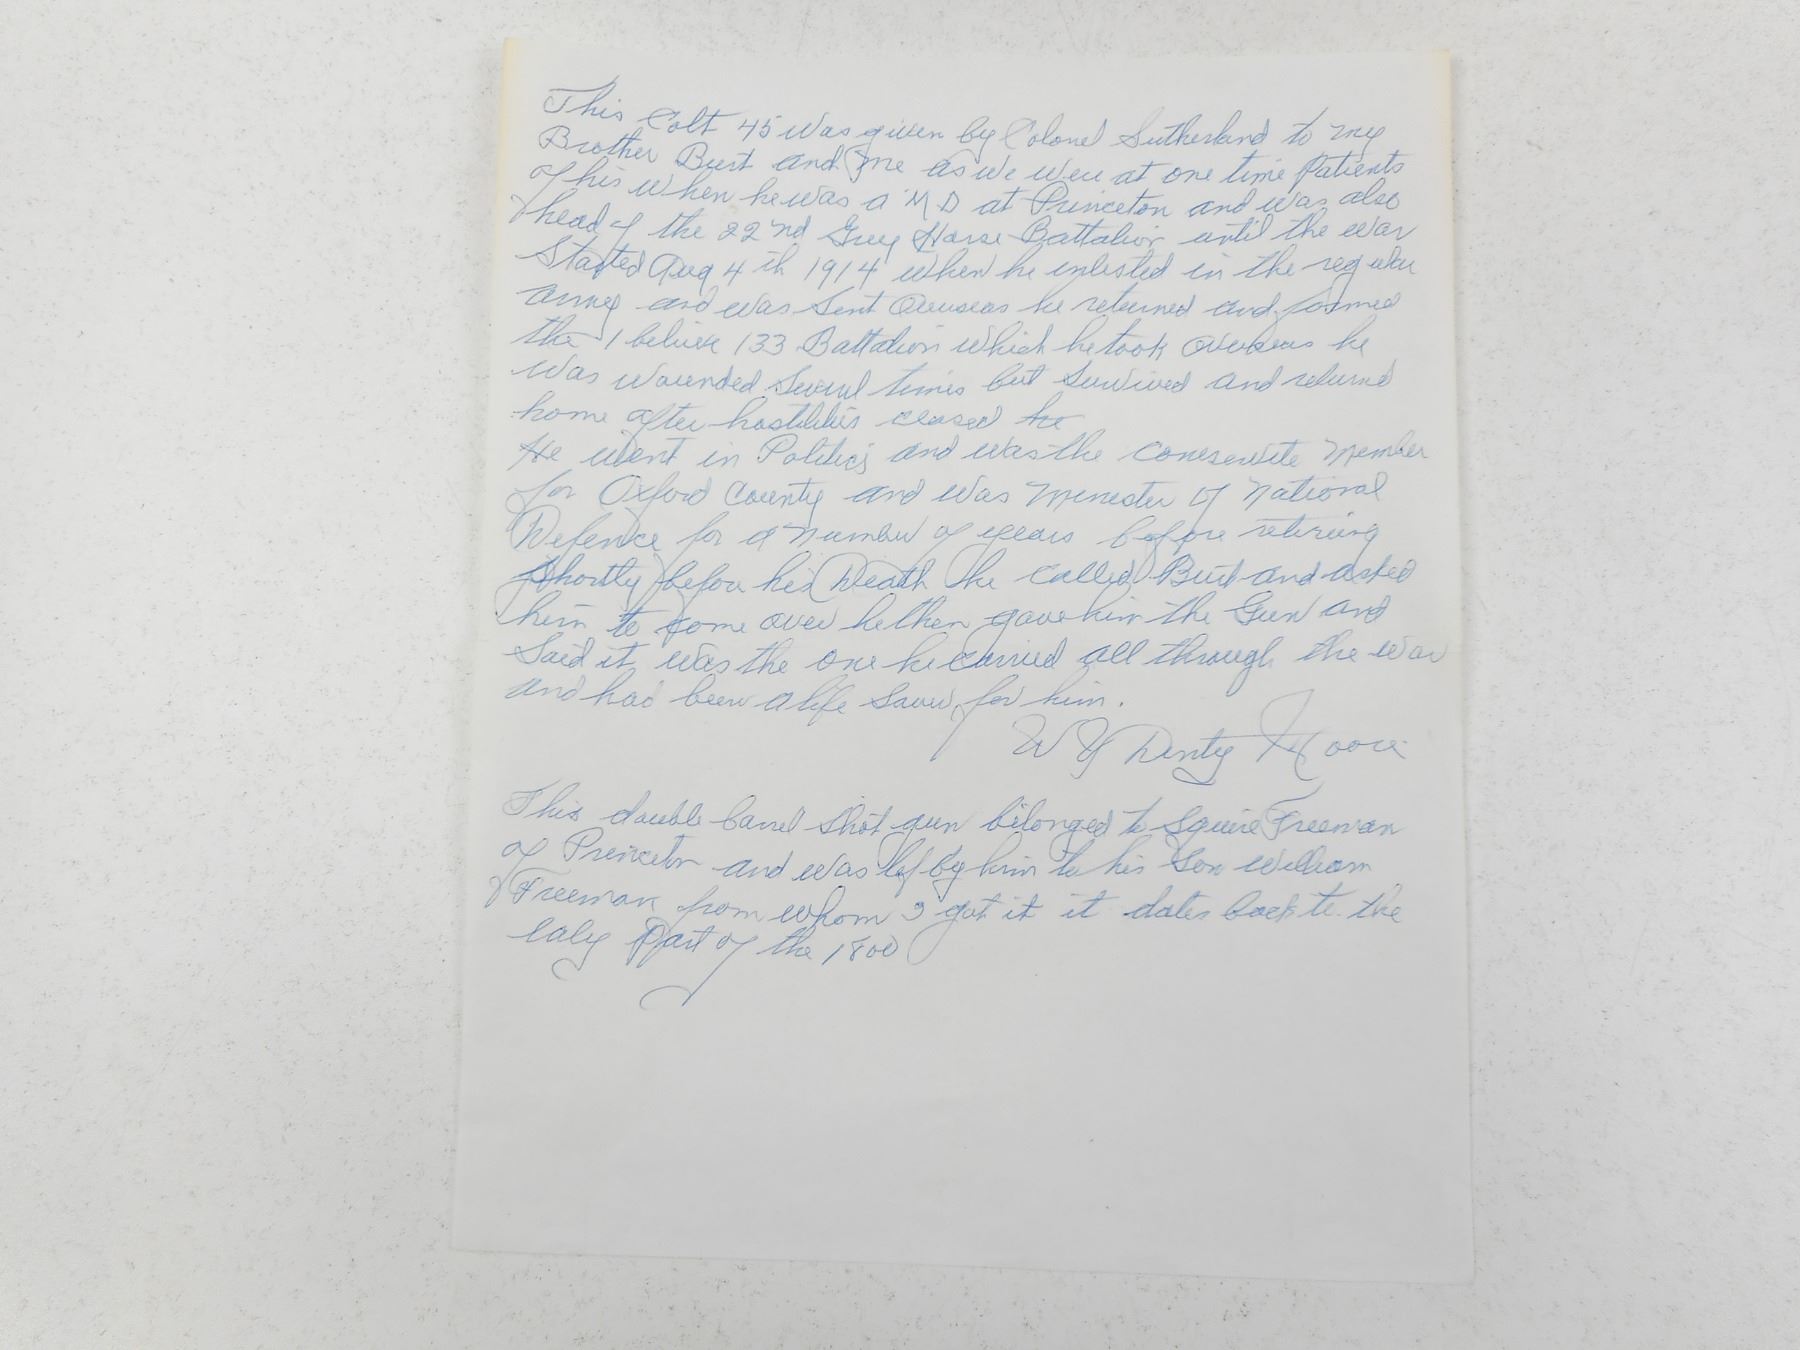 This Colt 45 was given by Colonel Sutherland to my
Brother Burt and me as we were at one time Patients
of his when he was a M D at Princeton and was also
head of the 22nd Grey Horse Battalion until the war
Started Aug 4 th 1914 when he enlisted in the regular
army and was Sent Overseas he returned and formed
the I believe 133 Battalion which he took overseas he
was wounded Several times but Survived and returned
home after hostilities ceased he
He went in Politics and was the Member
for Oxford County and was Minester of National
Defence for a number of years before retiring
Shortly before his Death he called Burt and asked
him to come over he then gave him the Gun and
Said it was the one he carried all through the war
and had been a life Saver for him.
W Denty Moore
This double barrel shot gun belonged to Squire Freeman
of Princeton and was lef by him to his Son William
Freeman from whom I got it it dates back to the
Part of the 1800